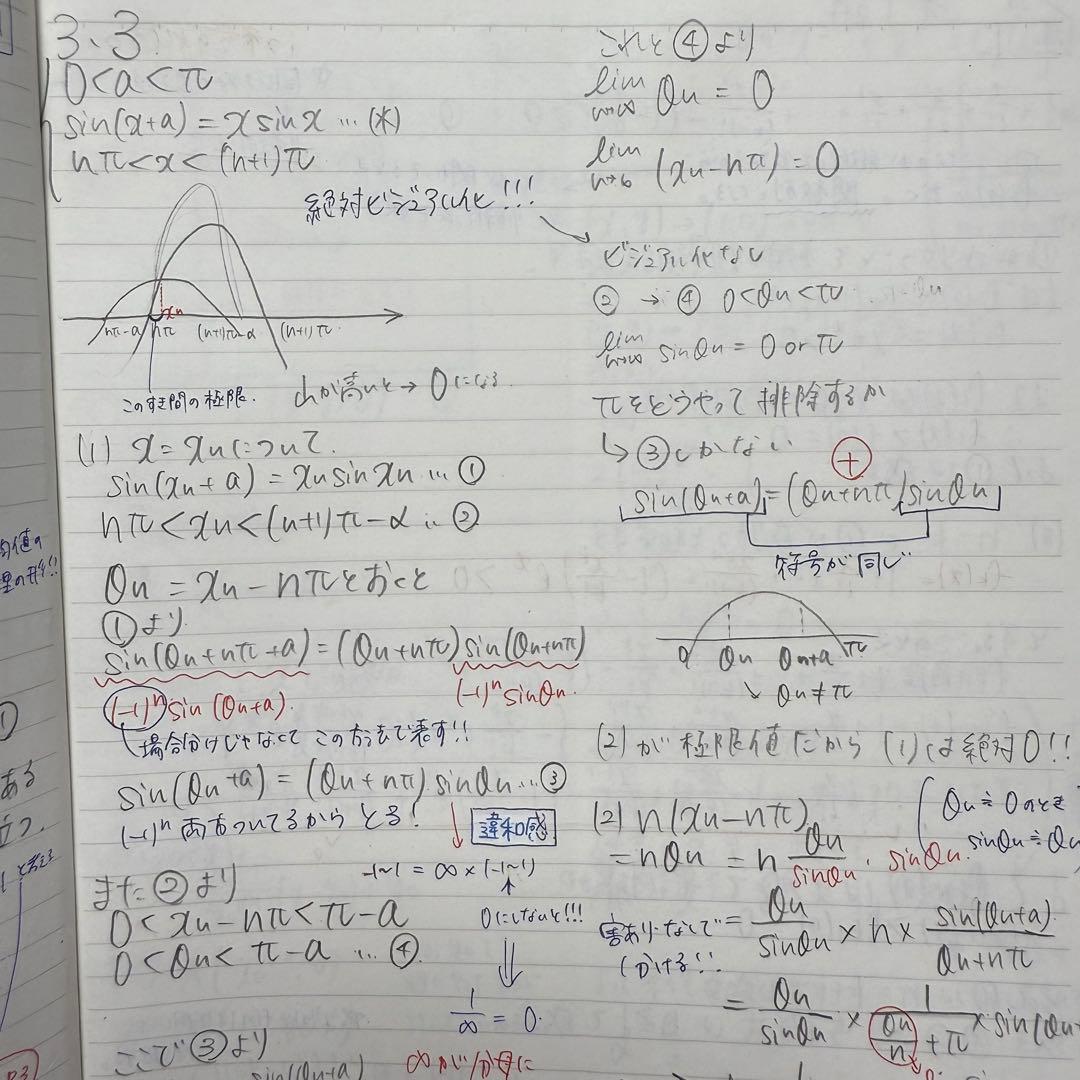 3.3
0<a<π
sin(x+a)=x sin x …(*)
nπ<x<(n+1)π
絶対ビジュアル化!!!
xn
nπ-a nπ (n+1)π-a (n+1)π
このすき間の極限.
山が高いと→0になる
(1) x=xnについて
sin(xn+a)=xn sin xn …①
nπ<xn<(n+1)π-a …②
θn=xn-nπとおくと
①より
sin(θn+nπ+a)=(θn+nπ)sin(θn+nπ)
(-1)^n sin(θn+a). (-1)^n sinθn.
場合分けじゃなくて この方法で表す!!
sin(θn+a)=(θn+nπ)sinθn …③
(-1)^n 両方ついてるから とる!
違和感
-1~1=∞×(-1~1)
また②より
0<xn-nπ<π-a
0にしないと!!!
0<θn<π-a …④
1/∞=0.
ここで③より
∞が分母に
sin(θn+a)
これと④より
lim n→∞ θn=0
lim n→∞ (xn-nπ)=0
ビジュアル化なし
②→④ 0<θn<π
lim n→∞ sinθn=0 or π
πをどうやって排除するか
↳③しかない
+
sin(θn+a)=(θn+nπ)sinθn
符号が同じ
0 θn θn+a π
↘ θn≠π
(2)が極限値だから (1)は絶対0!!
(2) n(xn-nπ)
θn≒0のとき
sinθn≒θn
=nθn=n θn/sinθn・sinθn.
=θn/sinθn×n×sin(θn+a)/(θn+nπ)
かける!!
=θn/sinθn×1/(θn/n+π)×sin(θn
0.